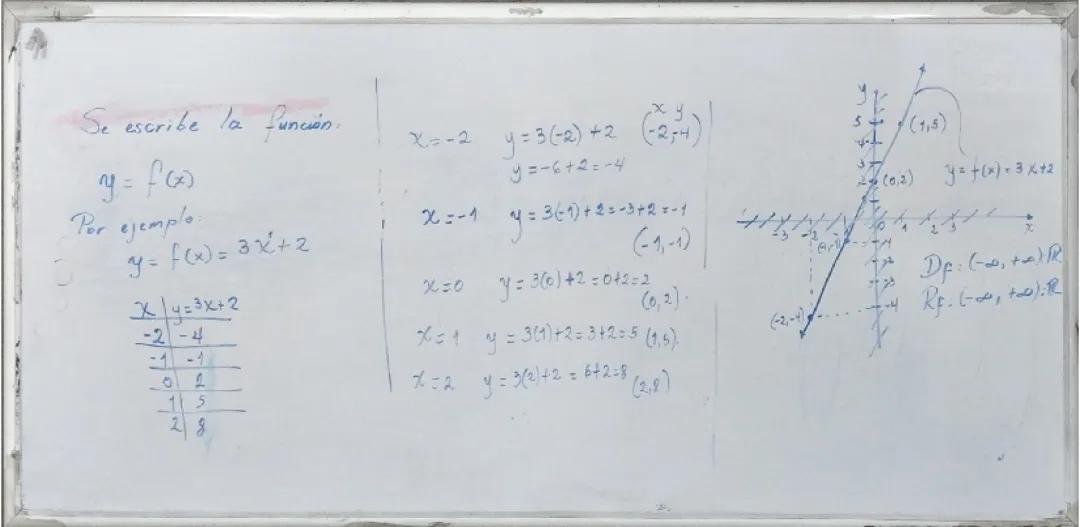 Se escribe la función:
y = f(x)
Por ejemplo:
y = f(x) = 3x¹ + 2
x | y = 3x+2
-2 | -4
-1 | -1
0 | 2
1 | 5
2 | 8
x y
x = -2 y = 3(-2) + 2 (-2,-4)
y = -6+2 = -4
x = -1 y = 3(-1)+2 = -3+2 = -1
(-1,-1)
x = 0 y = 3(0)+2 = 0+2 = 2
(0,2).
x = 1 y = 3(1)+2 = 3+2 = 5 (1,5).
x = 2 y = 3(2)+2 = 6+2 = 8 (2,8)
y
5 (1,5)
4
3 y = f(x) = 3x+2
2 (0,2)
-3 -2 0 1 2 3 x
(-1,-1) -1
-2
-3
-4
(-2,-4)
Df: (-∞, +∞): ℝ
Rf: (-∞, +∞): ℝ